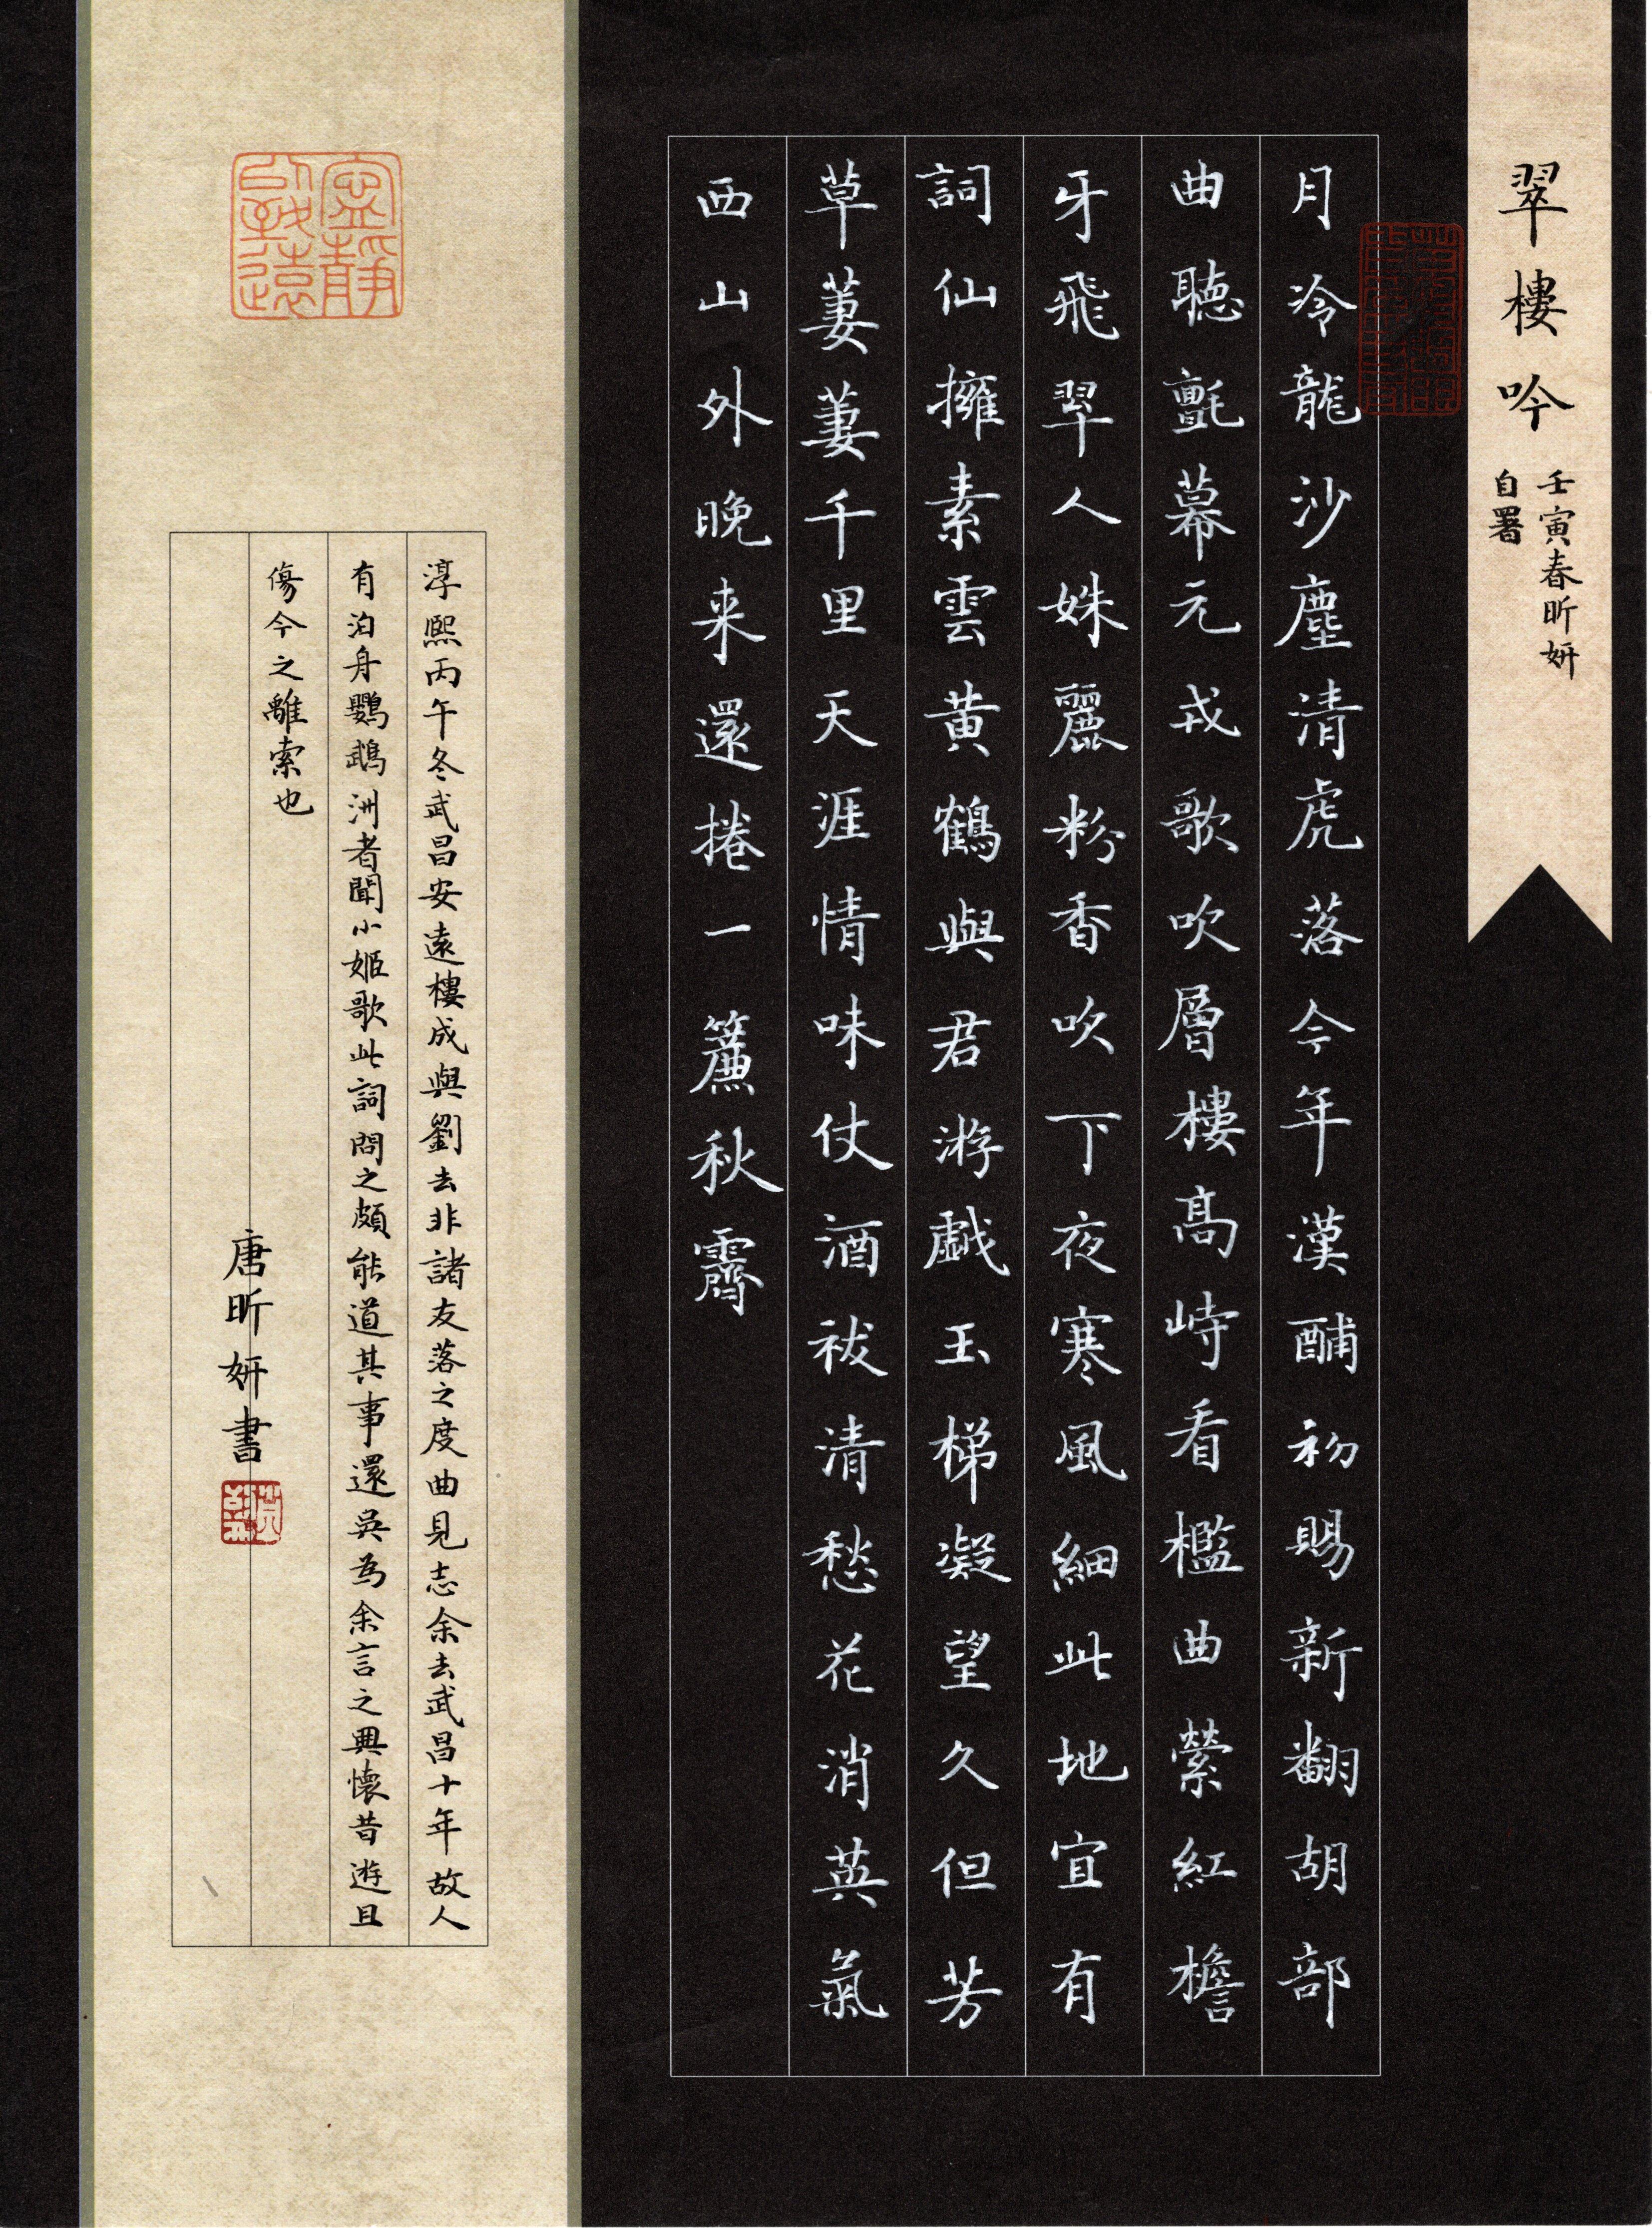 翠樓吟
壬寅春昕妍
自署
月冷龍沙塵清虎落今年漢酺初賜新翻胡部
曲聽氈幕元戎歌吹層樓高峙看檻曲縈紅檐
牙飛翠人姝麗粉香吹下夜寒風細此地宜有
詞仙擁素雲黃鶴與君游戲玉梯凝望久但芳
草萋萋千里天涯情味仗酒祓清愁花消英氣
西山外晚来還捲一簾秋霽
寧靜
致遠
淳熙丙午冬武昌安遠樓成與劉去非諸友落之度曲見志余去武昌十年故人
有泊舟鸚鵡洲者聞小姬歌此詞問之頗能道其事還吳為余言之興懷昔遊且
傷今之離索也
唐昕妍書